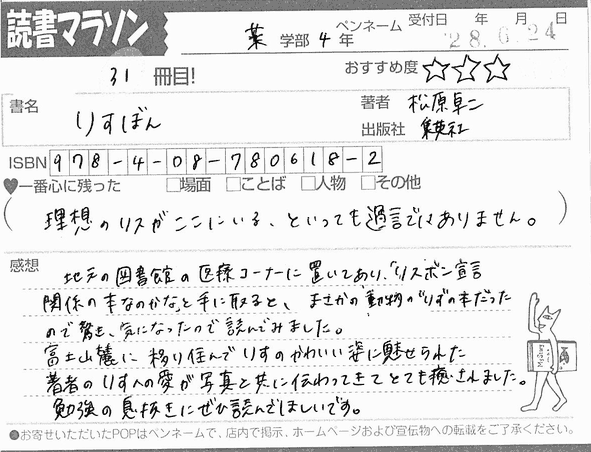 読書マラソン
薬 学部 4 年 ペンネーム 受付日 年 月 日
28. 6. 24
31 冊目! おすすめ度 ☆☆☆
書名 りすぼん
著者 松原卓二
出版社 集英社
ISBN 978-4-08-780618-2
♥一番心に残った □場面 □ことば □人物 □その他
(理想のリスがここにいる、といっても過言ではありません。)
感想
地元の図書館の医療コーナーに置いてあり、「リスボン宣言
関係の本なのかな」と手に取ると、まさかの動物の"りす"の本だった
ので驚き、気になったので読んでみました。
富士山麓に移り住んでりすのかわいい姿に魅せられた
著者のりすへの愛が写真と共に伝わってきてとても癒されました。
勉強の息抜きにぜひ読んでほしいです。
●お寄せいただいたPOPはペンネームで、店内で掲示、ホームページおよび宣伝物への転載をご了承ください。